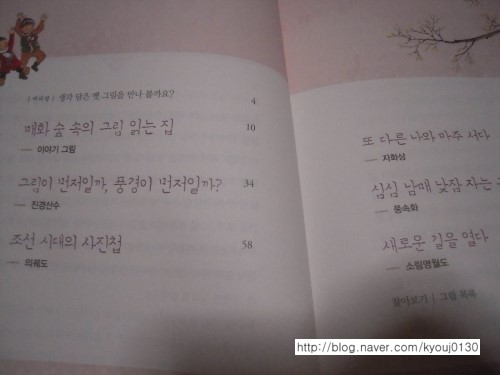 | 머리말 | 생각 담은 옛 그림을 만나 볼까요? 4
매화 숲 속의 그림 읽는 집 10
— 이야기 그림
그림이 먼저일까, 풍경이 먼저일까? 34
— 진경산수
조선 시대의 사진첩 58
— 의궤도
또 다른 나와 마주 서다
— 자화상
심심 남매 낮잠 자는
— 풍속화
새로운 길을 열다
— 소림명월도
찾아보기 | 그림 목록
http://blog.naver.com/kyouj0130